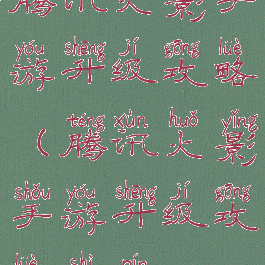 腾讯火影手
yóu shēng jí gōng lüè
游升级攻略
téng xùn huǒ yǐng
（腾讯火影
shǒu yóu shēng jí gōng
手游升级攻
lüè shì pín